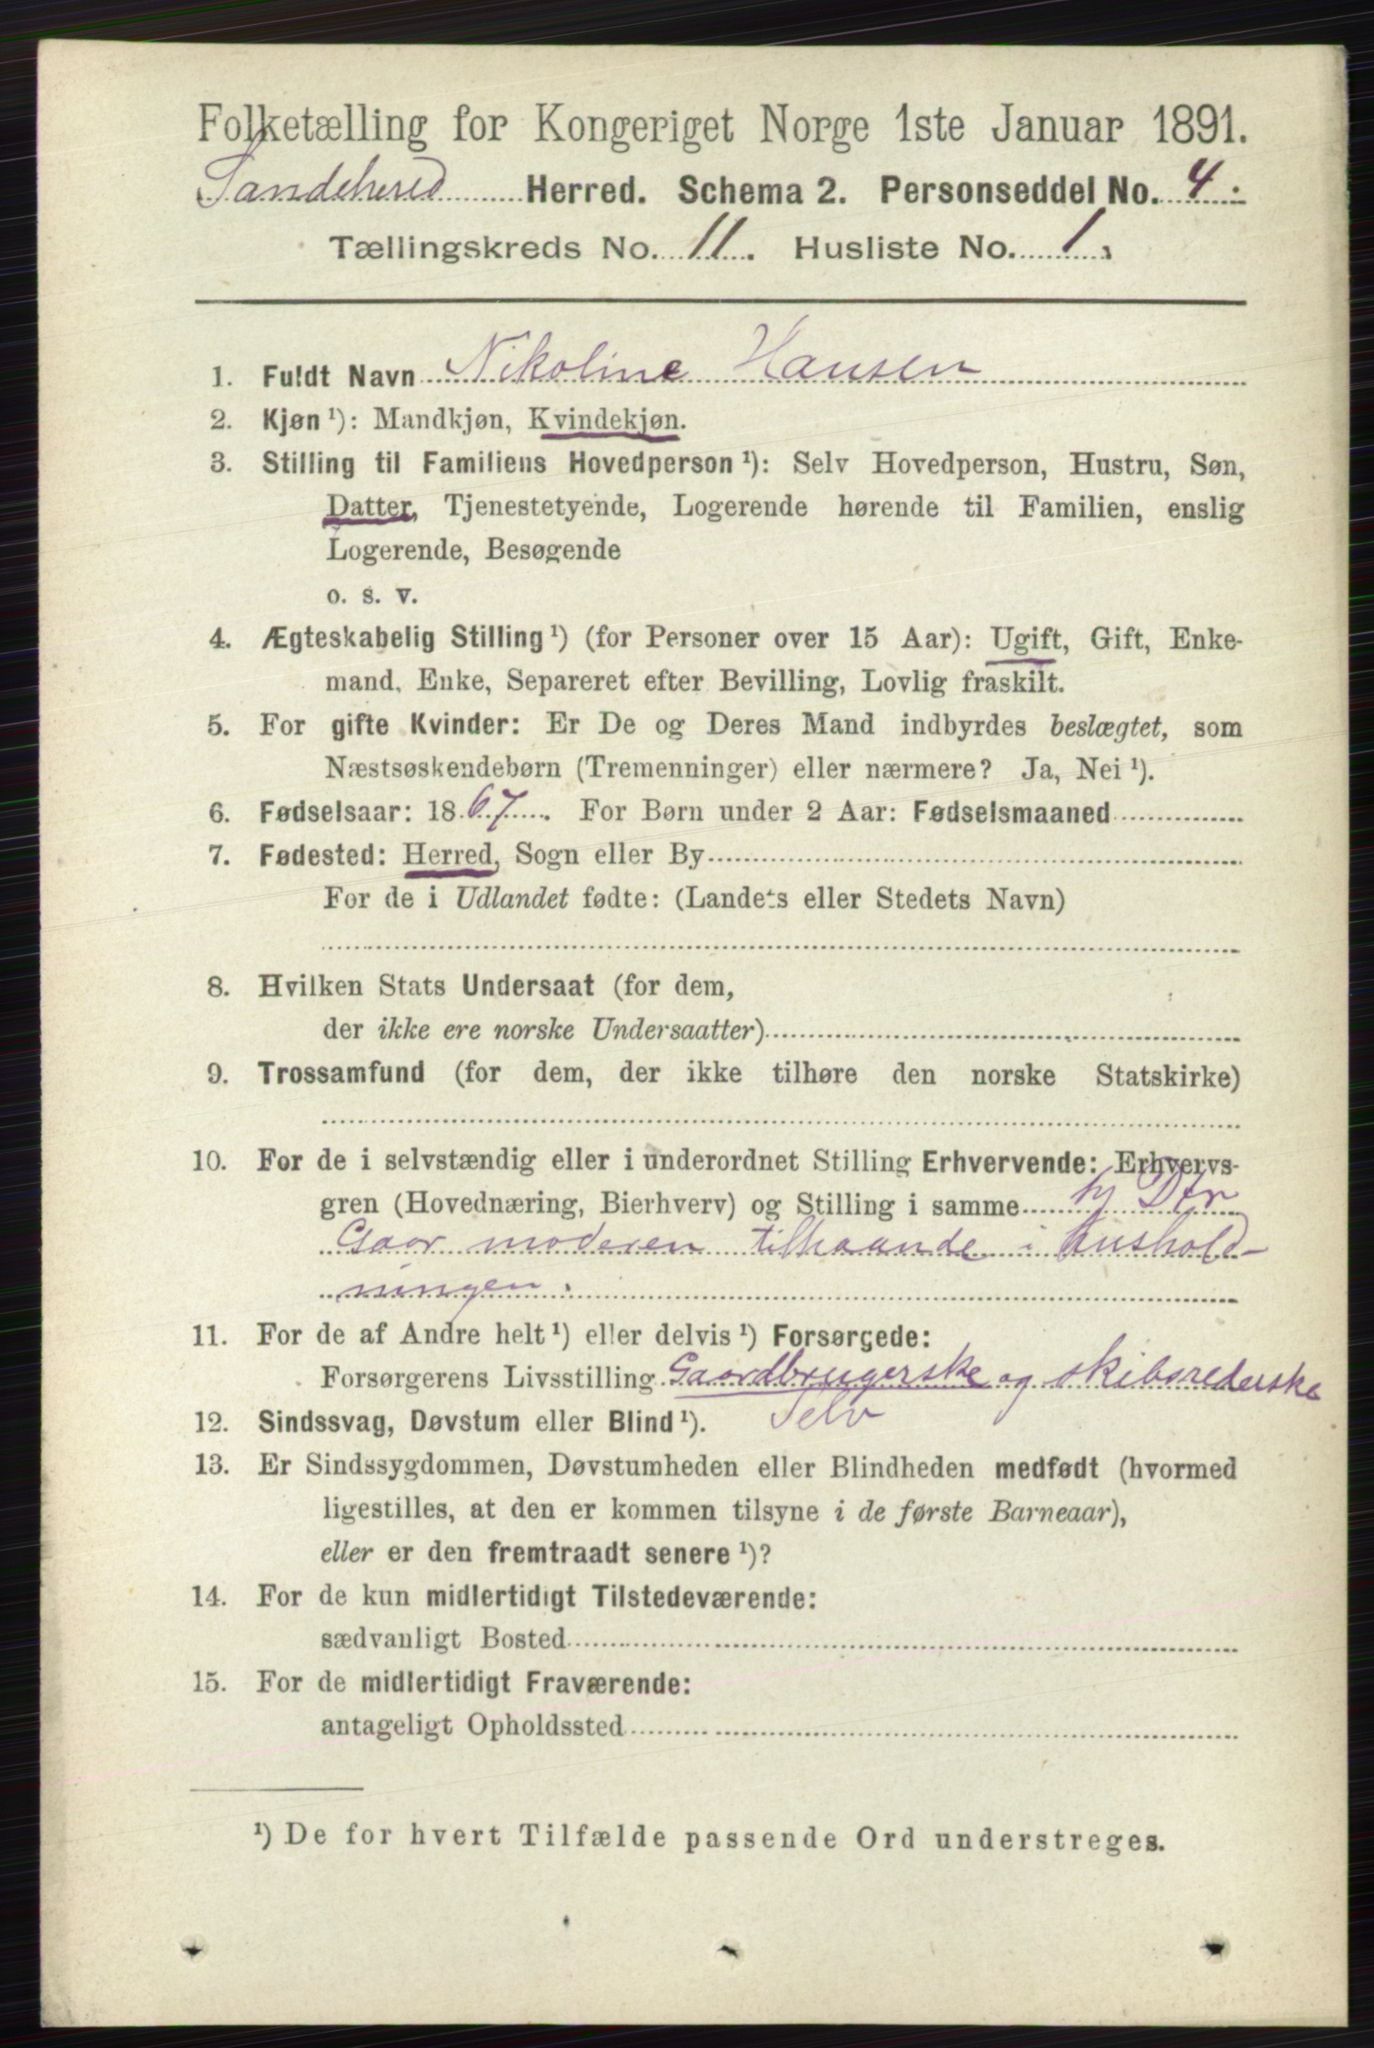 Folketælling for Kongeriget Norge 1ste Januar 1891.
Sandeherred Herred. Schema 2. Personseddel No. 4.
Tællingskreds No. 11. Husliste No. 1.
1. Fuldt Navn Nikoline Hansen
2. Kjøn ¹): Mandkjøn, Kvindekjøn.
3. Stilling til Familiens Hovedperson ¹): Selv Hovedperson, Hustru, Søn,
Datter, Tjenestetyende, Logerende hørende til Familien, enslig
Logerende, Besøgende
o. s. v.
4. Ægteskabelig Stilling ¹) (for Personer over 15 Aar): Ugift, Gift, Enke-
mand, Enke, Separeret efter Bevilling, Lovlig fraskilt.
5. For gifte Kvinder: Er De og Deres Mand indbyrdes beslægtet, som
Næstsøskendebørn (Tremenninger) eller nærmere? Ja, Nei ¹).
6. Fødselsaar: 1867. For Børn under 2 Aar: Fødselsmaaned
7. Fødested: Herred, Sogn eller By
For de i Udlandet fødte: (Landets eller Stedets Navn)
8. Hvilken Stats Undersaat (for dem,
der ikke ere norske Undersaatter)
9. Trossamfund (for dem, der ikke tilhøre den norske Statskirke)
10. For de i selvstændig eller i underordnet Stilling Erhvervende: Erhvervs-
gren (Hovednæring, Bierhverv) og Stilling i samme Dtr
Gaar moderen tilhaande i hushold-
ningen.
11. For de af Andre helt ¹) eller delvis ¹) Forsørgede:
Forsørgerens Livsstilling Gaardbrugerske og skibsrederske
12. Sindssvag, Døvstum eller Blind ¹). Selv
13. Er Sindssygdommen, Døvstumheden eller Blindheden medfødt (hvormed
ligestilles, at den er kommen tilsyne i de første Barneaar),
eller er den fremtraadt senere ¹)?
14. For de kun midlertidigt Tilstedeværende:
sædvanligt Bosted
15. For de midlertidigt Fraværende:
antageligt Opholdssted
¹) De for hvert Tilfælde passende Ord understreges.